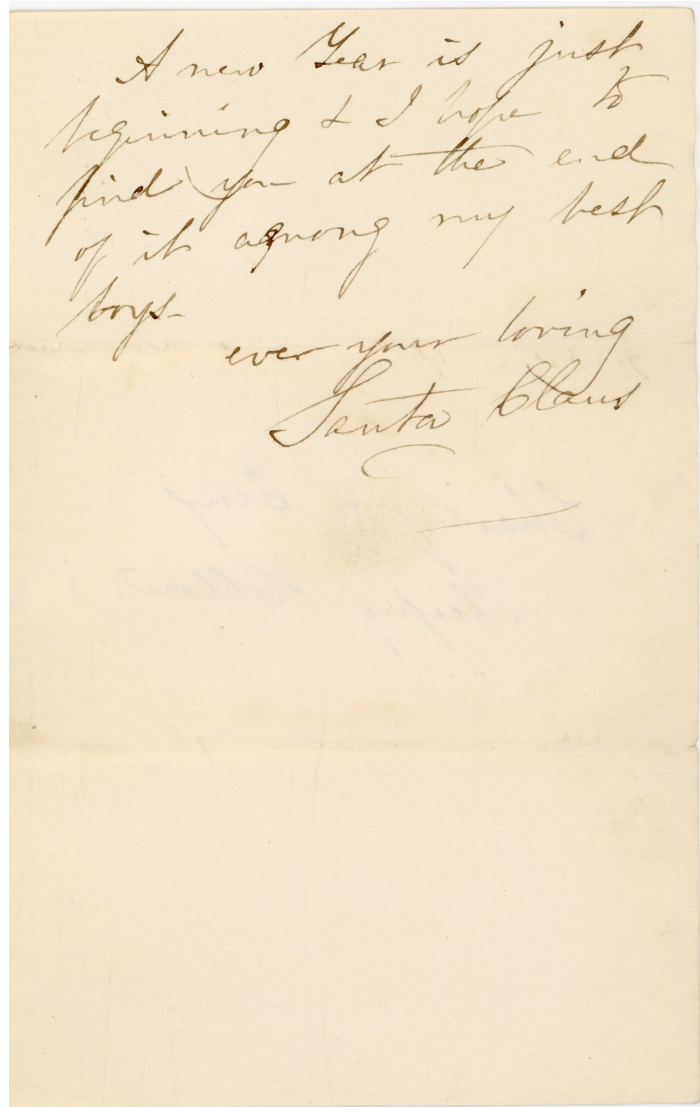 A new Year is just
beginning & I hope to
find you at the end
of it among my best
boys-
ever your loving
Santa Claus